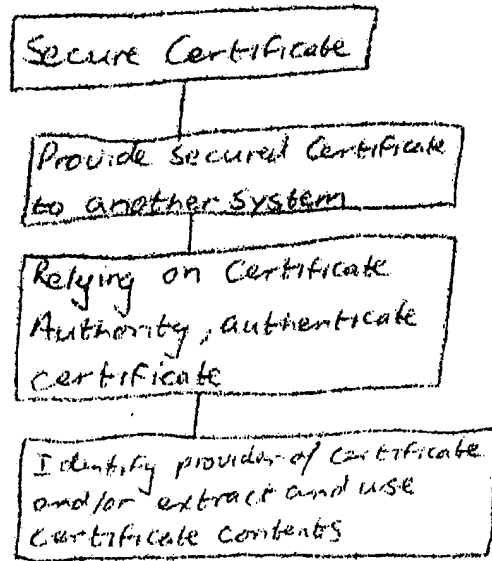 Secure Certificate
Provide secured Certificate
to another system
Relying on Certificate
Authority, authenticate
certificate
Identify provider of certificate
and/or extract and use
Certificate contents